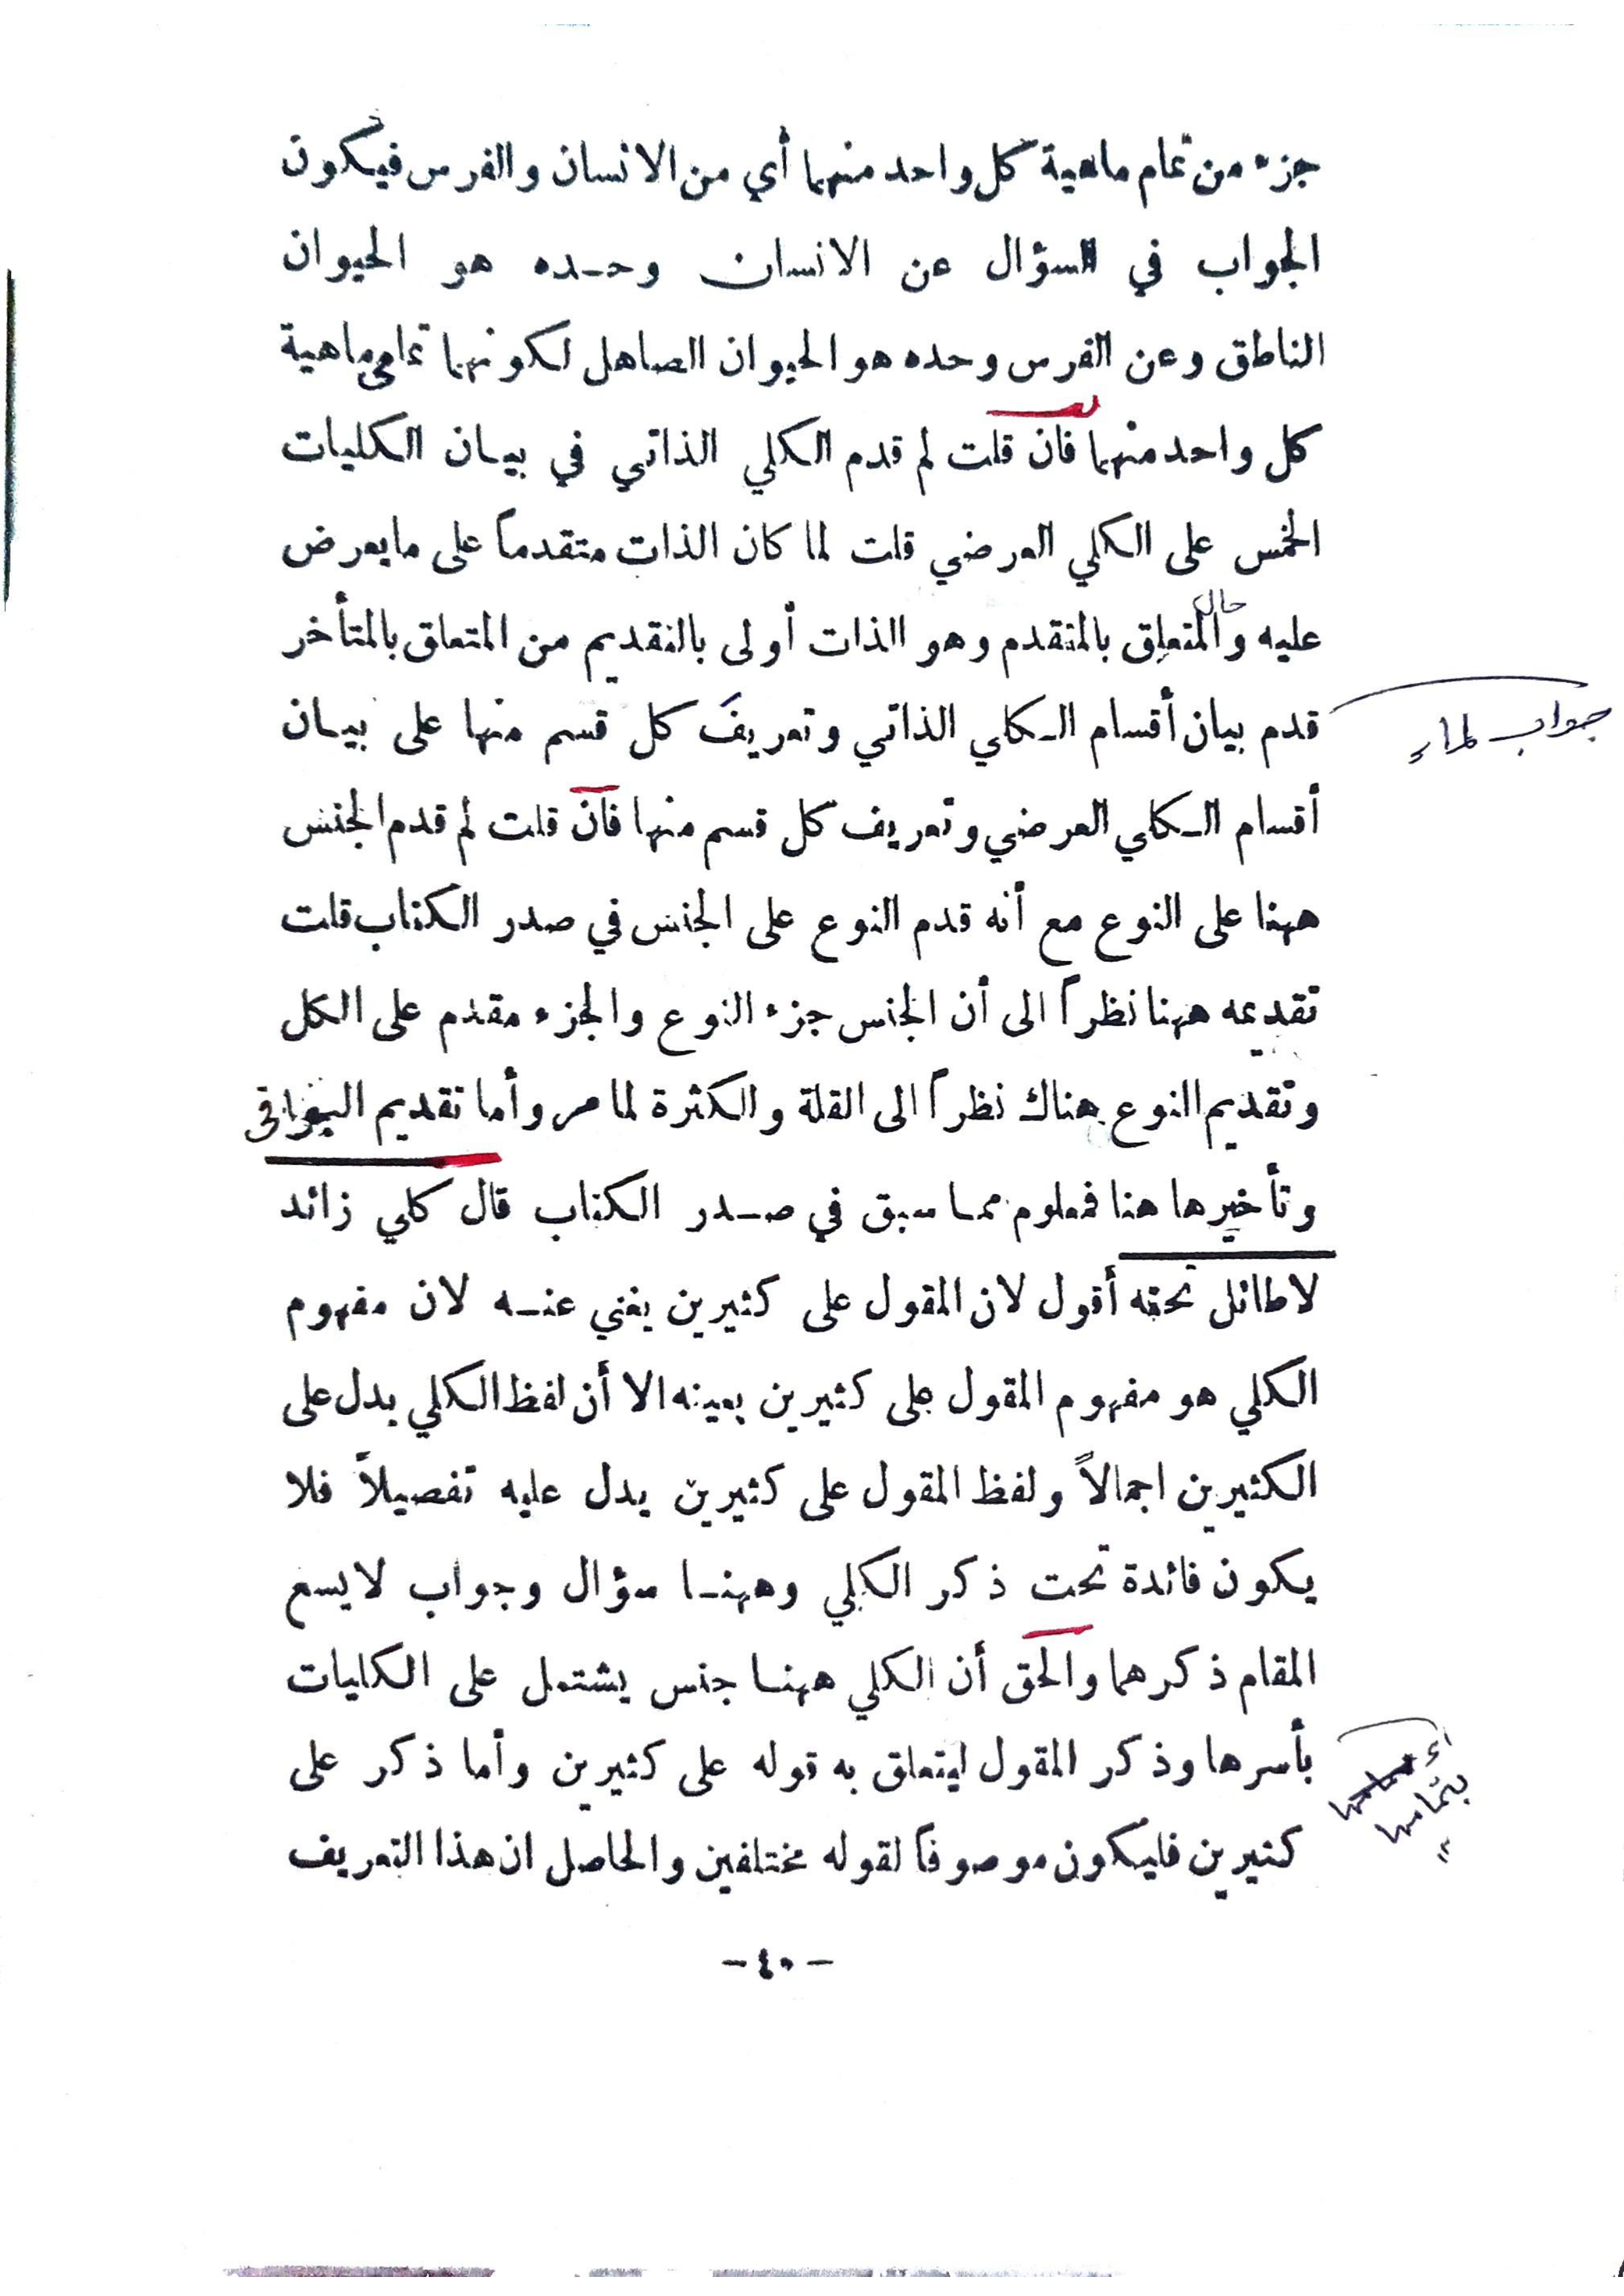 جزء من تمام ماهية كل واحد منهما أي من الانسان والفرس فيكون
الجواب في السؤال عن الانسان وحده هو الحيوان
الناطق وعن الفرس وحده هو الحيوان الصاهل لكونهما تمامي ماهية
كل واحد منهما فان قلت لم قدم الكلي الذاتي في بيان الكليات
الخمس على الكلي العرضي قلت لما كان الذات متقدماً على مايعرض
حال
عليه والمتعلق بالمتقدم وهو الذات أولى بالتقديم من المتعلق بالمتأخر
قدم بيان أقسام الكلي الذاتي وتعريف كل قسم منها على بيان
جواب لما
أقسام الكلي العرضي وتعريف كل قسم منها فان قلت لم قدم الجنس
ههنا على النوع مع أنه قدم النوع على الجنس في صدر الكتاب قلت
تقديمه ههنا نظراً الى أن الجنس جزء النوع والجزء مقدم على الكل
وتقديم النوع هناك نظراً الى القلة والكثرة لما مر وأما تقديم البواقى
وتأخيرها هنا فمعلوم مما سبق في صدر الكتاب قال كلي زائد
لاطائل تحته أقول لان المقول على كثيرين يغني عنه لان مفهوم
الكلي هو مفهوم المقول على كثيرين بعينه الا أن لفظ الكلي يدل على
الكثيرين اجمالاً ولفظ المقول على كثيرين يدل عليه تفصيلاً فلا
يكون فائدة تحت ذكر الكلي وههنا سؤال وجواب لايسع
المقام ذكرهما والحق أن الكلي ههنا جنس يشتمل على الكليات
بأسرها وذكر المقول ليتعلق به قوله على كثيرين وأما ذكر على
بتمامها
كثيرين فليكون موصوفاً لقوله مختلفين والحاصل ان هذا التعريف
- ٤٥ -